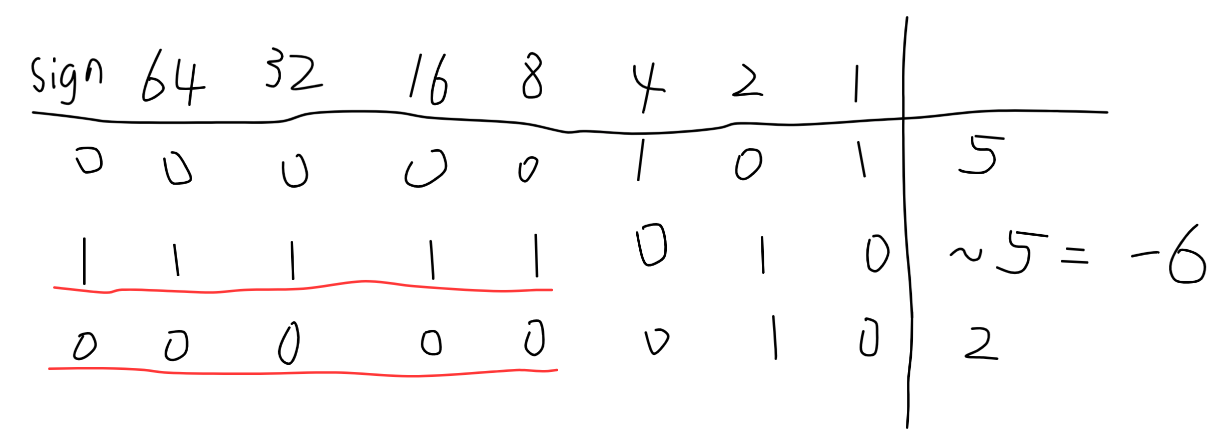 sign 64 32 16 8 4 2 1
0 0 0 0 0 1 0 1 5
1 1 1 1 1 0 1 0 ~5 = -6
0 0 0 0 0 0 1 0 2